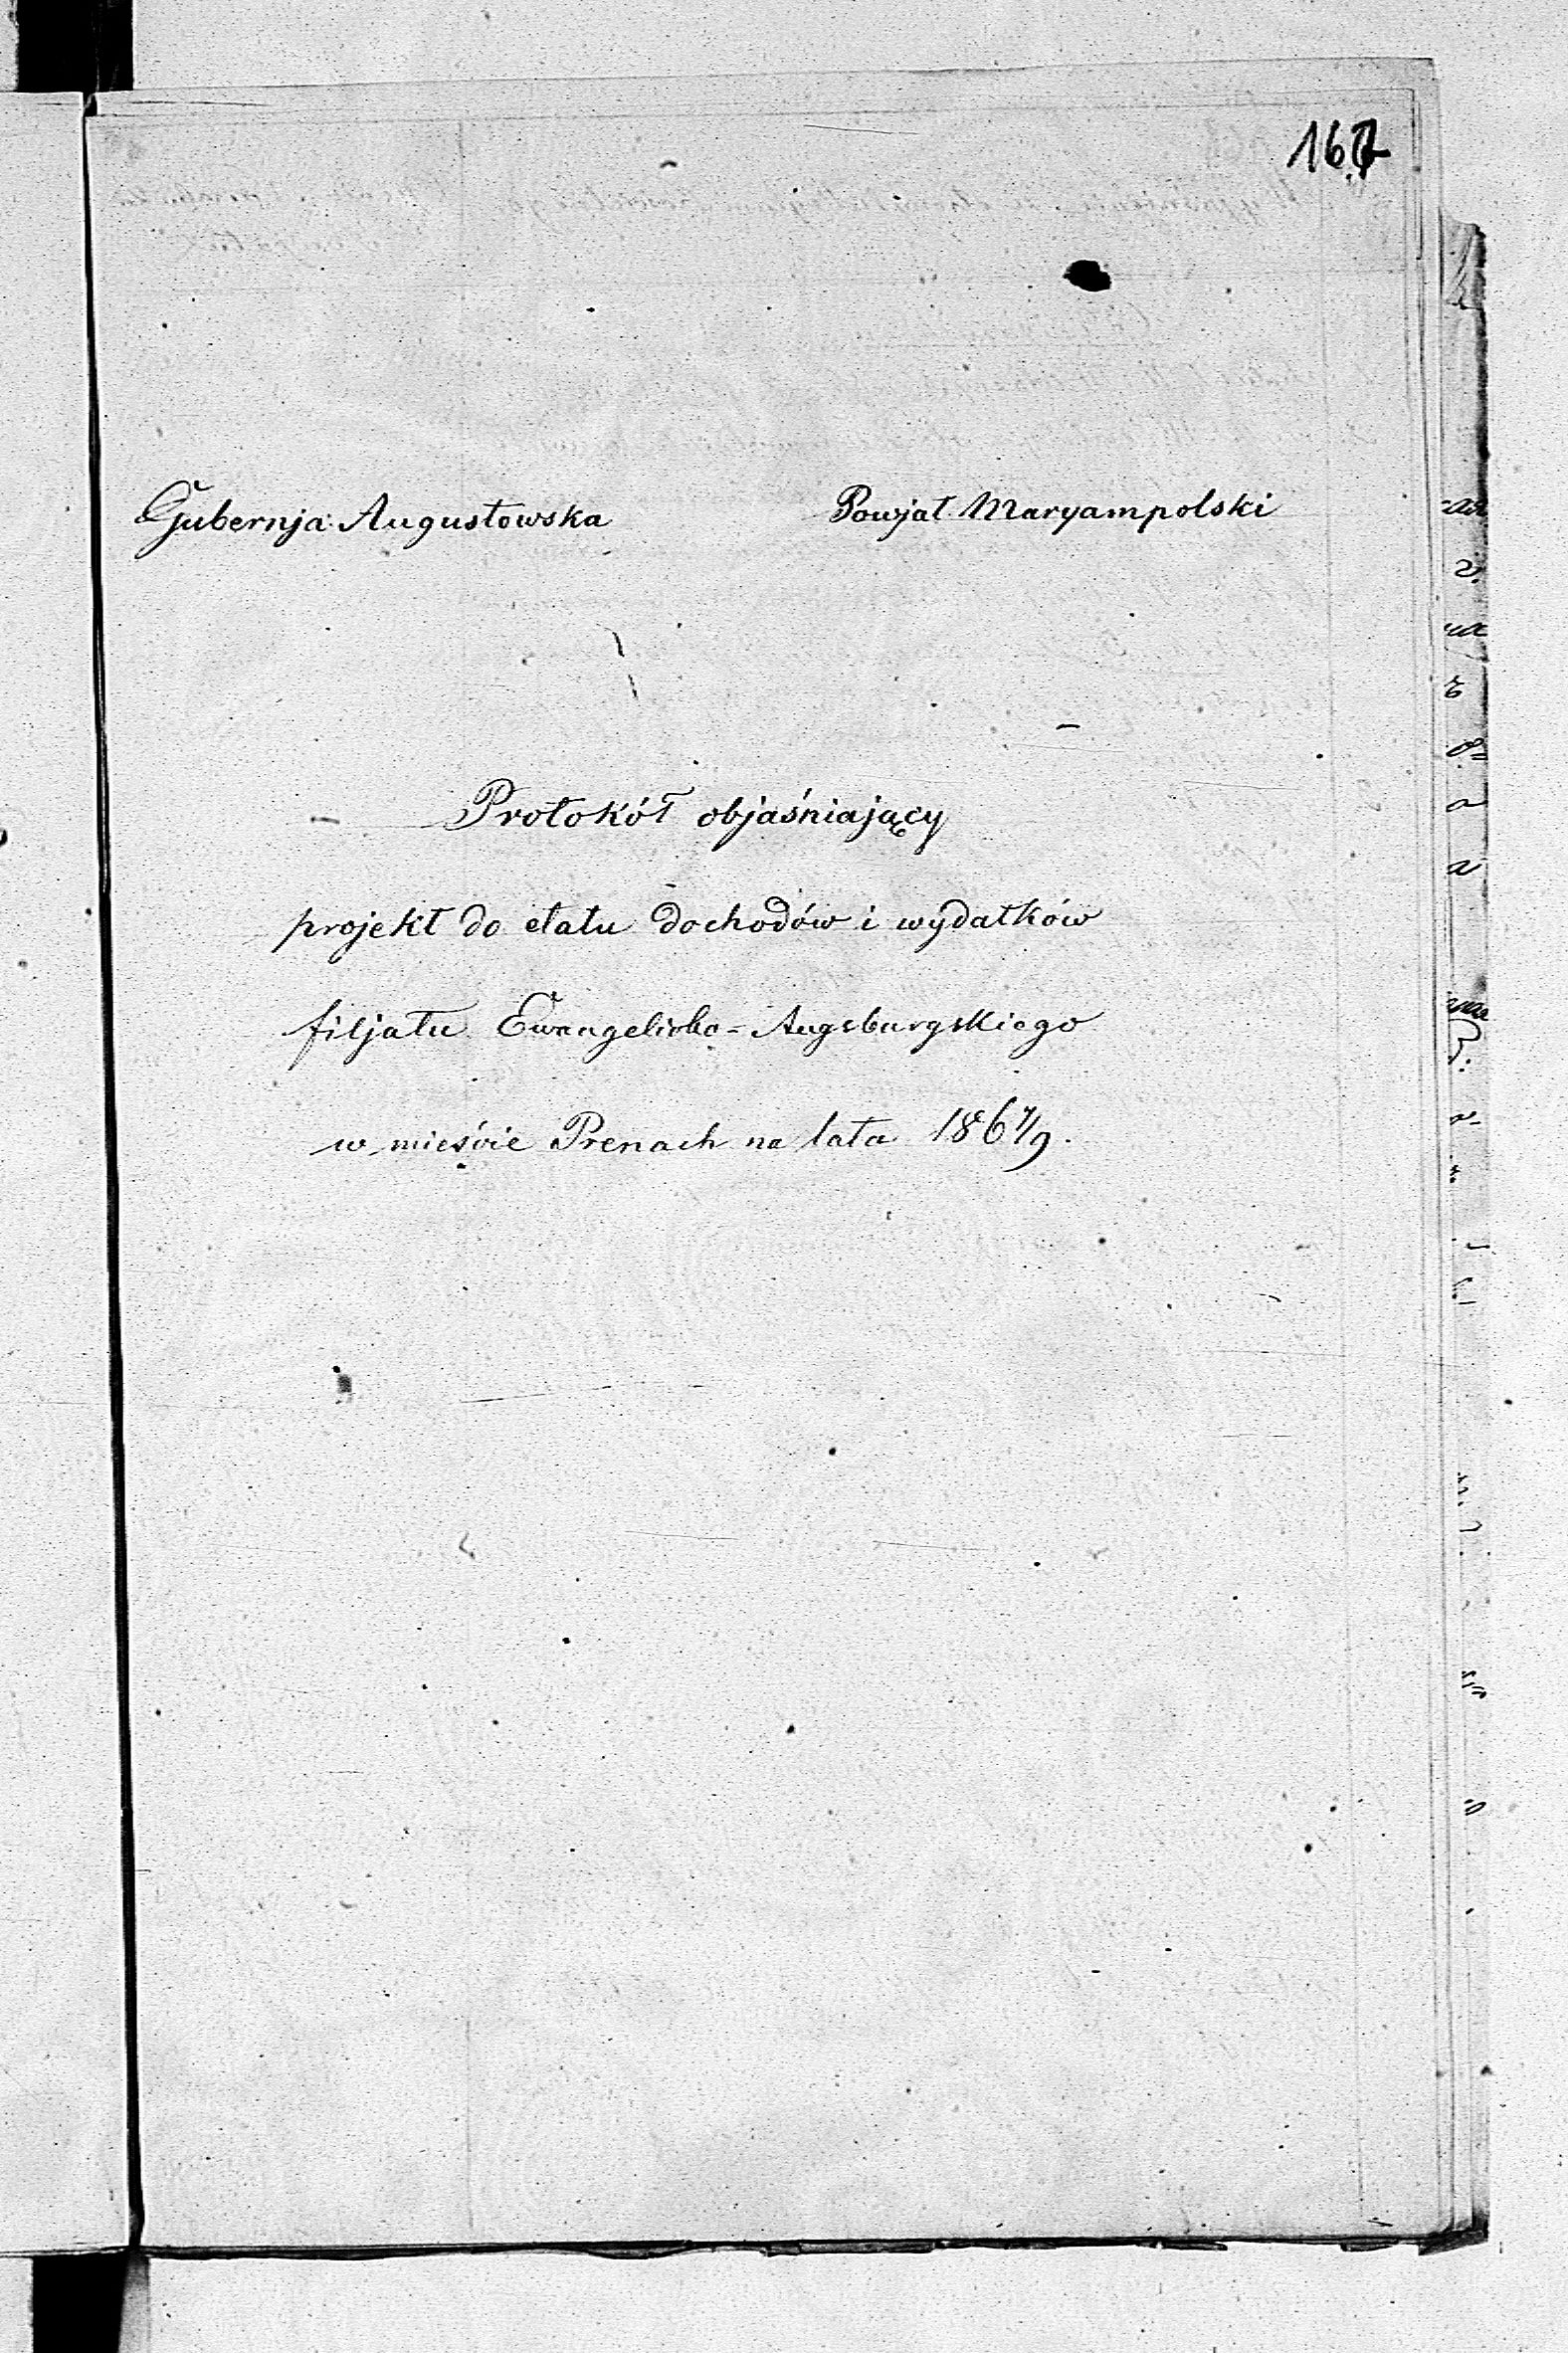 167
Gubernja Augustowska Powjat Maryampolski
Protokół objaśniający
projekt do etatu dochodów i wydatków
filjału Ewangelicko-Augsburgskiego
w mieście Prenach na lata 1867/9.